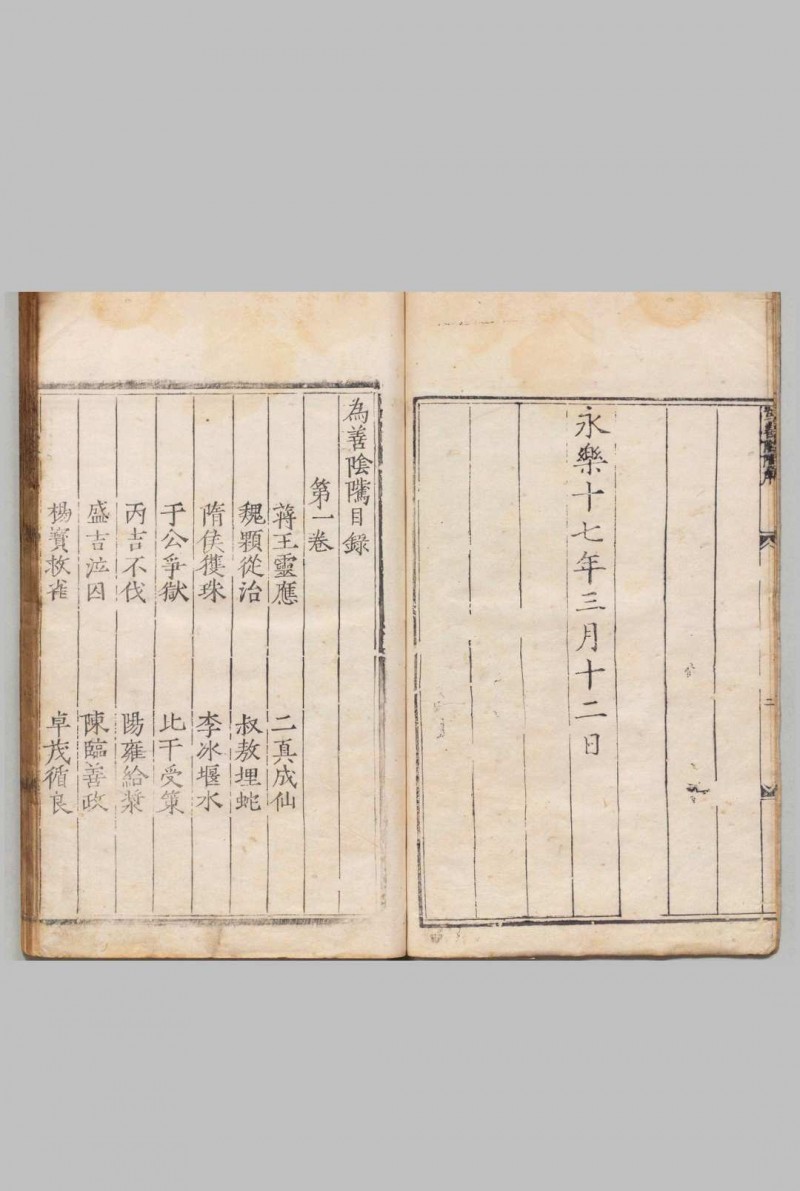 永樂十七年三月十二日
為善陰隲目錄
第一卷
蔣王靈應 二真成仙
魏顆從治 叔敖埋蛇
隋侯獲珠 李冰堰水
于公爭獄 比干受策
丙吉不伐 陽雍給漿
盛吉泣囚 陳臨善政
楊寶救雀 卓茂循良